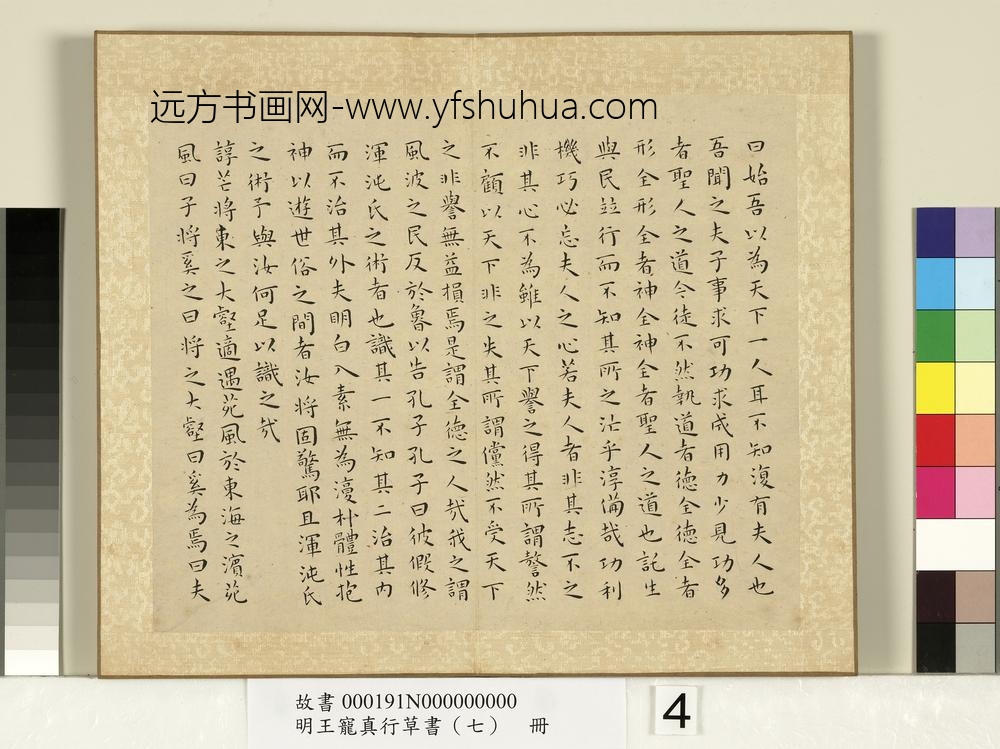 远方书画网-www.yfshuhua.com
曰始吾以為天下一人耳不知復有夫人也
吾聞之夫子事求可功求成用力少見功多
者聖人之道今徒不然執道者德全德全者
形全形全者神全神全者聖人之道也託生
與民並行而不知其所之汒乎淳備哉功利
機巧必忘夫人之心若夫人者非其志不之
非其心不為雖以天下譽之得其所謂謷然
不顧以天下非之失其所謂儻然不受天下
之非譽無益損焉是謂全德之人哉我之謂
風波之民反於魯以告孔子孔子曰彼假修
渾沌氏之術者也識其一不知其二治其內
而不治其外夫明白入素無為復朴體性抱
神以遊世俗之間者汝將固驚耶且渾沌氏
之術予與汝何足以識之哉
諄芒將東之大壑適遇苑風於東海之濱苑
風曰子將奚之曰將之大壑曰奚為焉曰夫
故書 000191N000000000
明王寵真行草書（七） 冊
4